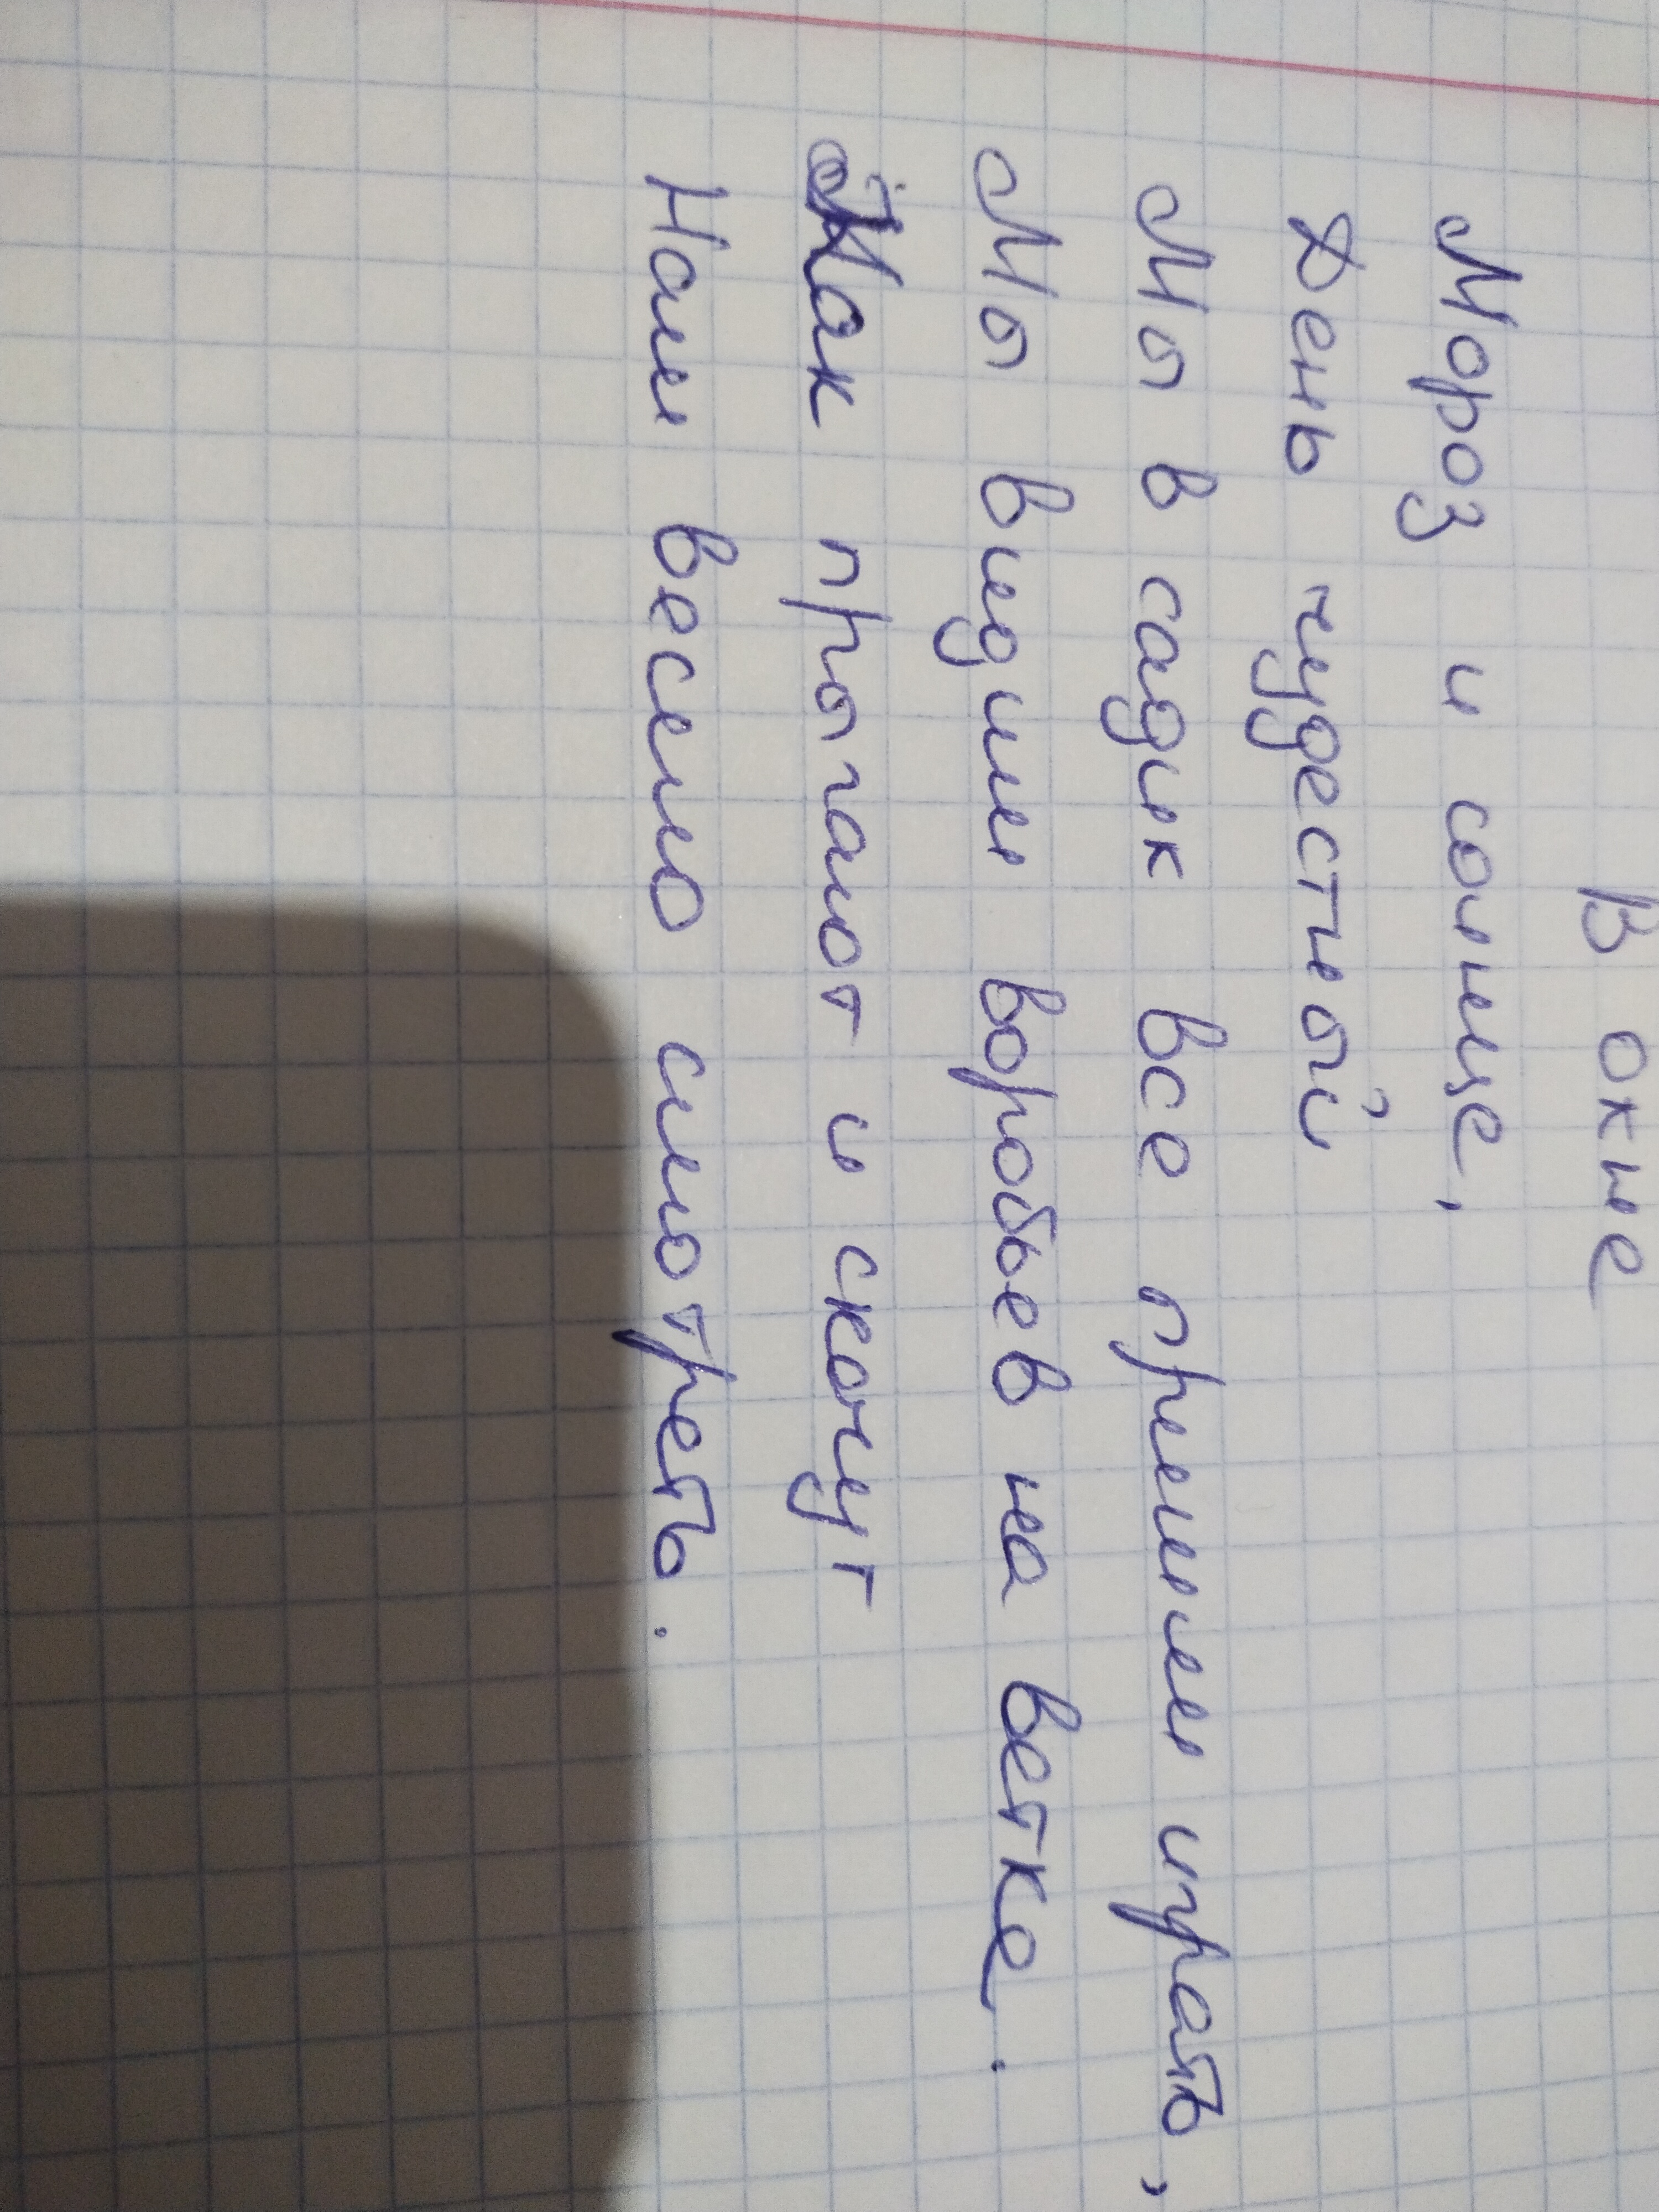 В окне
Мороз и солнце,
День чудестной
Мы в садик все пришли играть,
Мы видим воробьев на ветке.
Как прыгают и скачут
Нам весело смотреть.